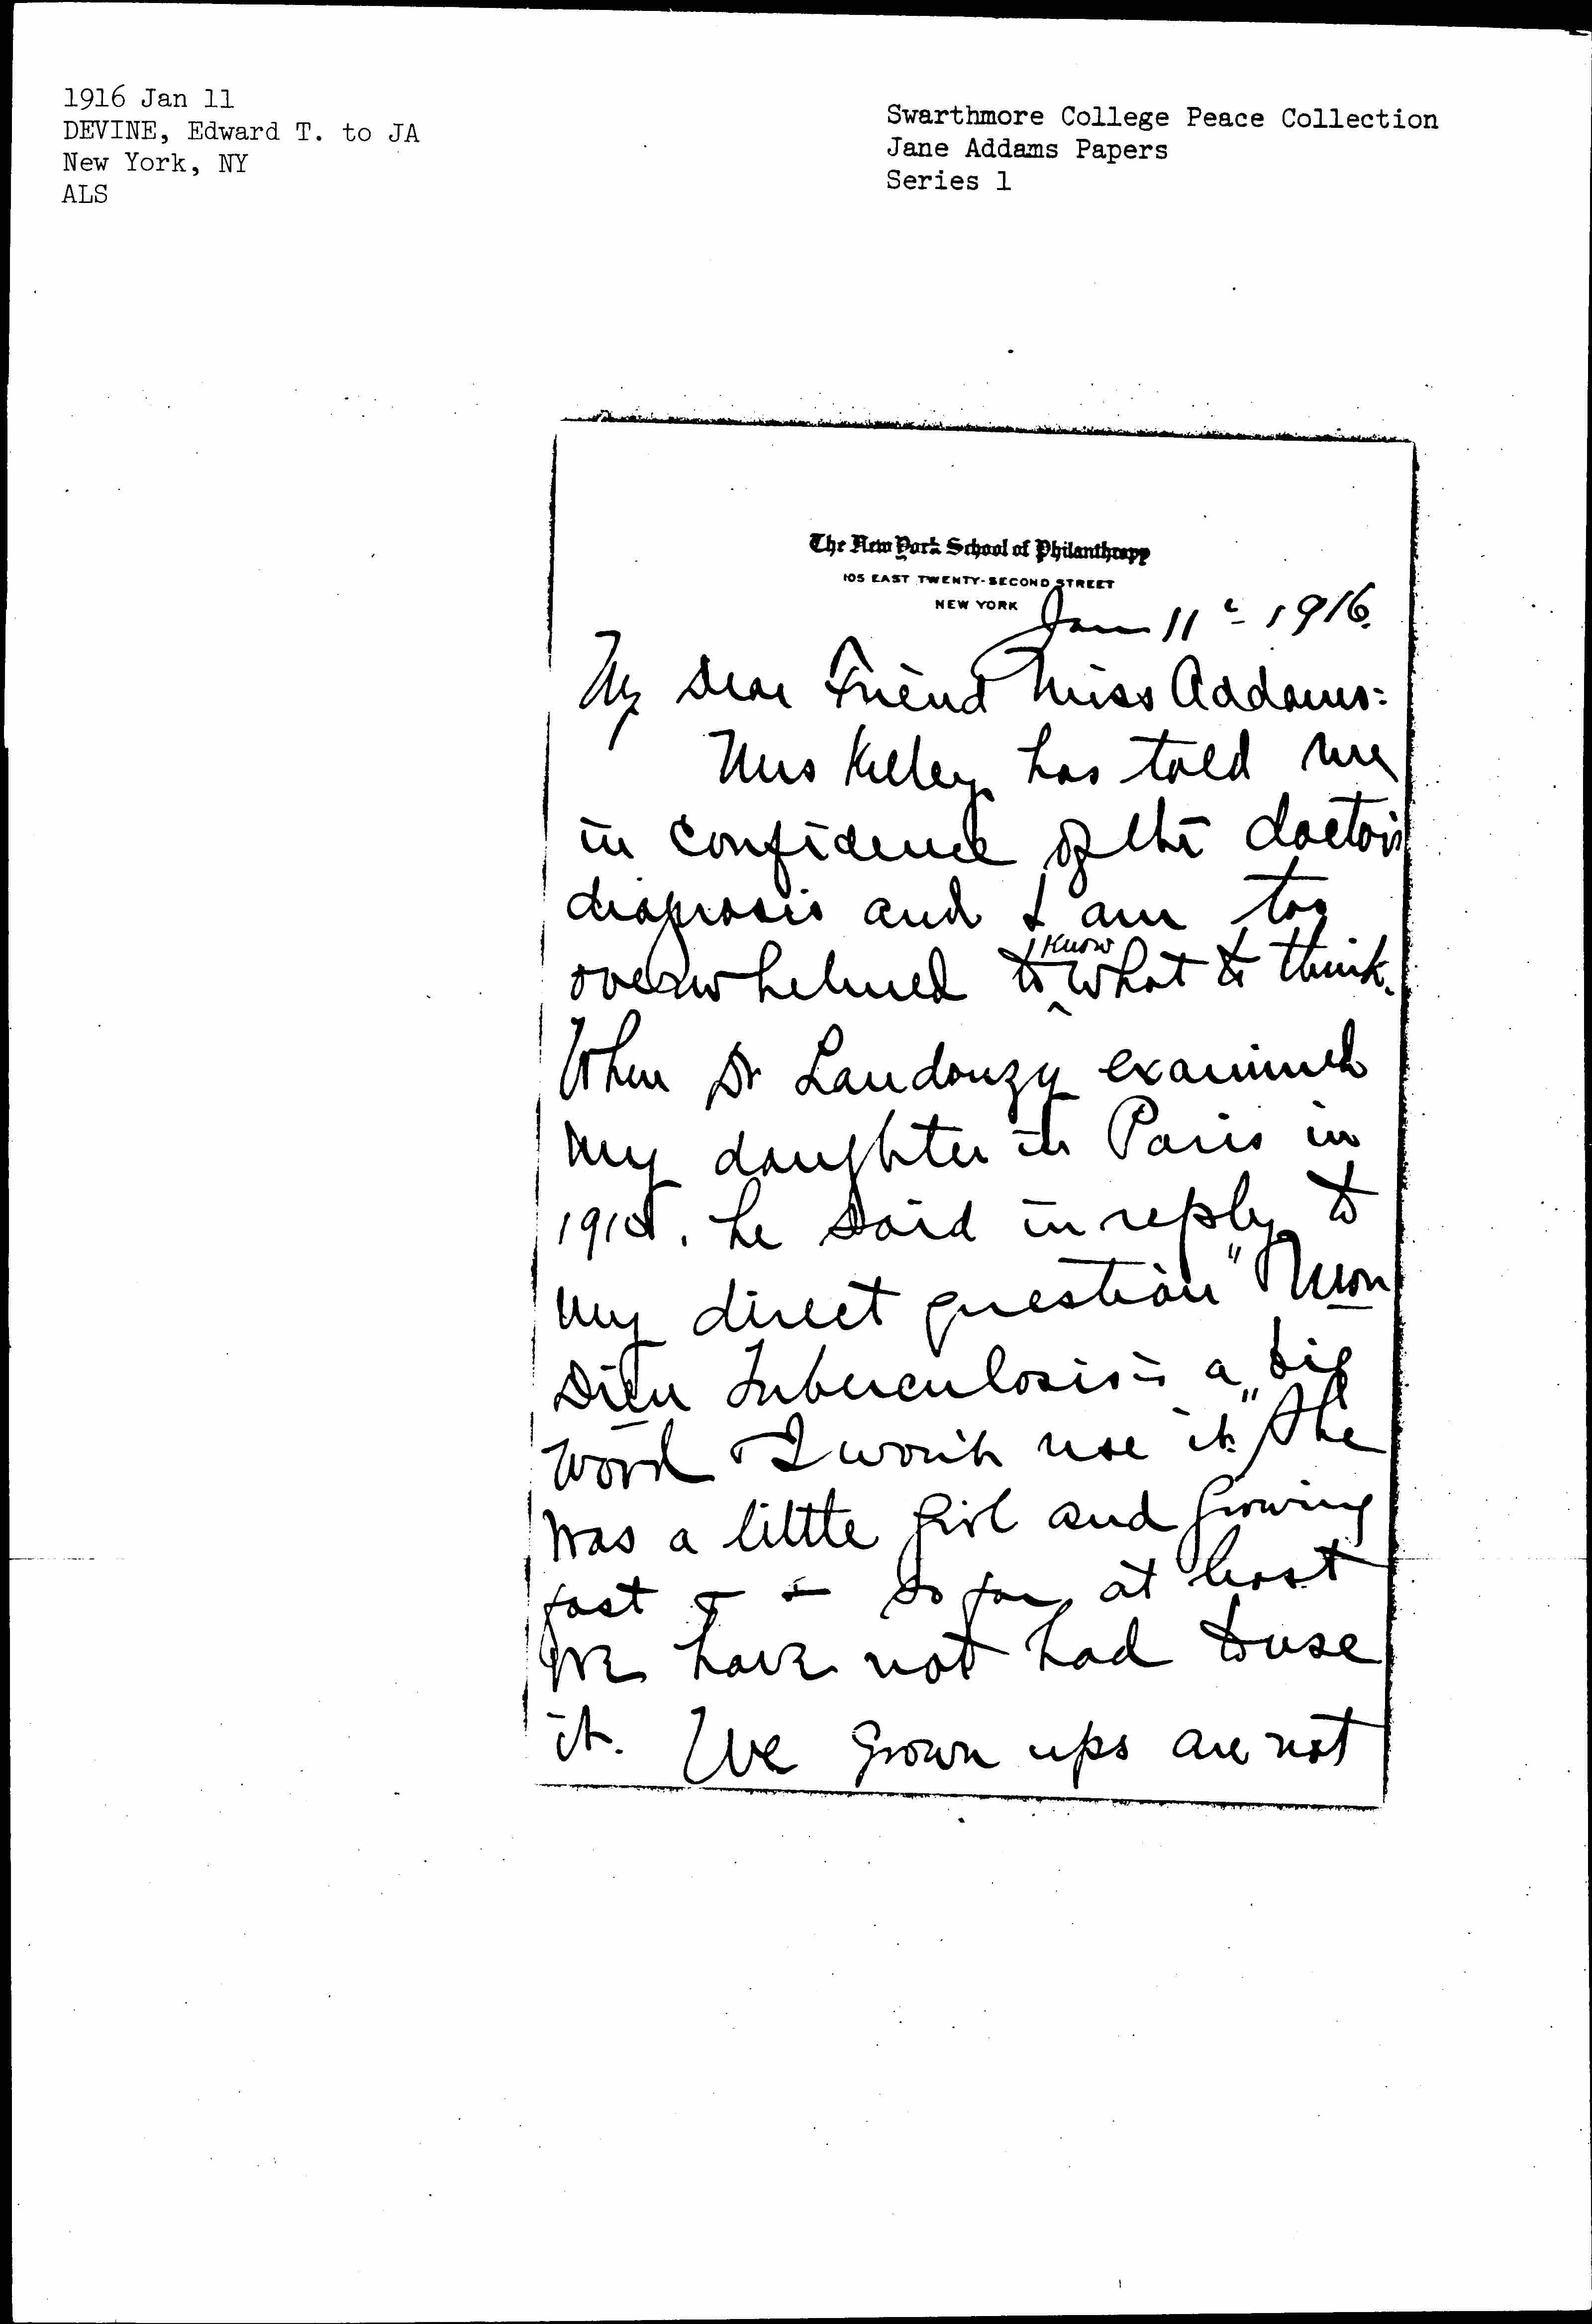 1916 Jan 11
DEVINE, Edward T. to JA
New York, NY
ALS
Swarthmore College Peace Collection
Jane Addams Papers
Series 1
The New York School of Philanthropy
105 EAST TWENTY-SECOND STREET
NEW YORK
Jan 11 1916.
My Dear Friend Miss Addams:
Mrs Kelley has told me
in confidence of the doctor's
diagnosis and I am too
overwhelmed to know what to think.
When Dr Landouzy examined
my daughter in Paris in
he said in reply to
my direct question "Mon
Dieu Tuberculosis is a big
word I won't use it." She
was a little girl and growing
fast - - so far at least
we have not had to use
it. We grown ups are not